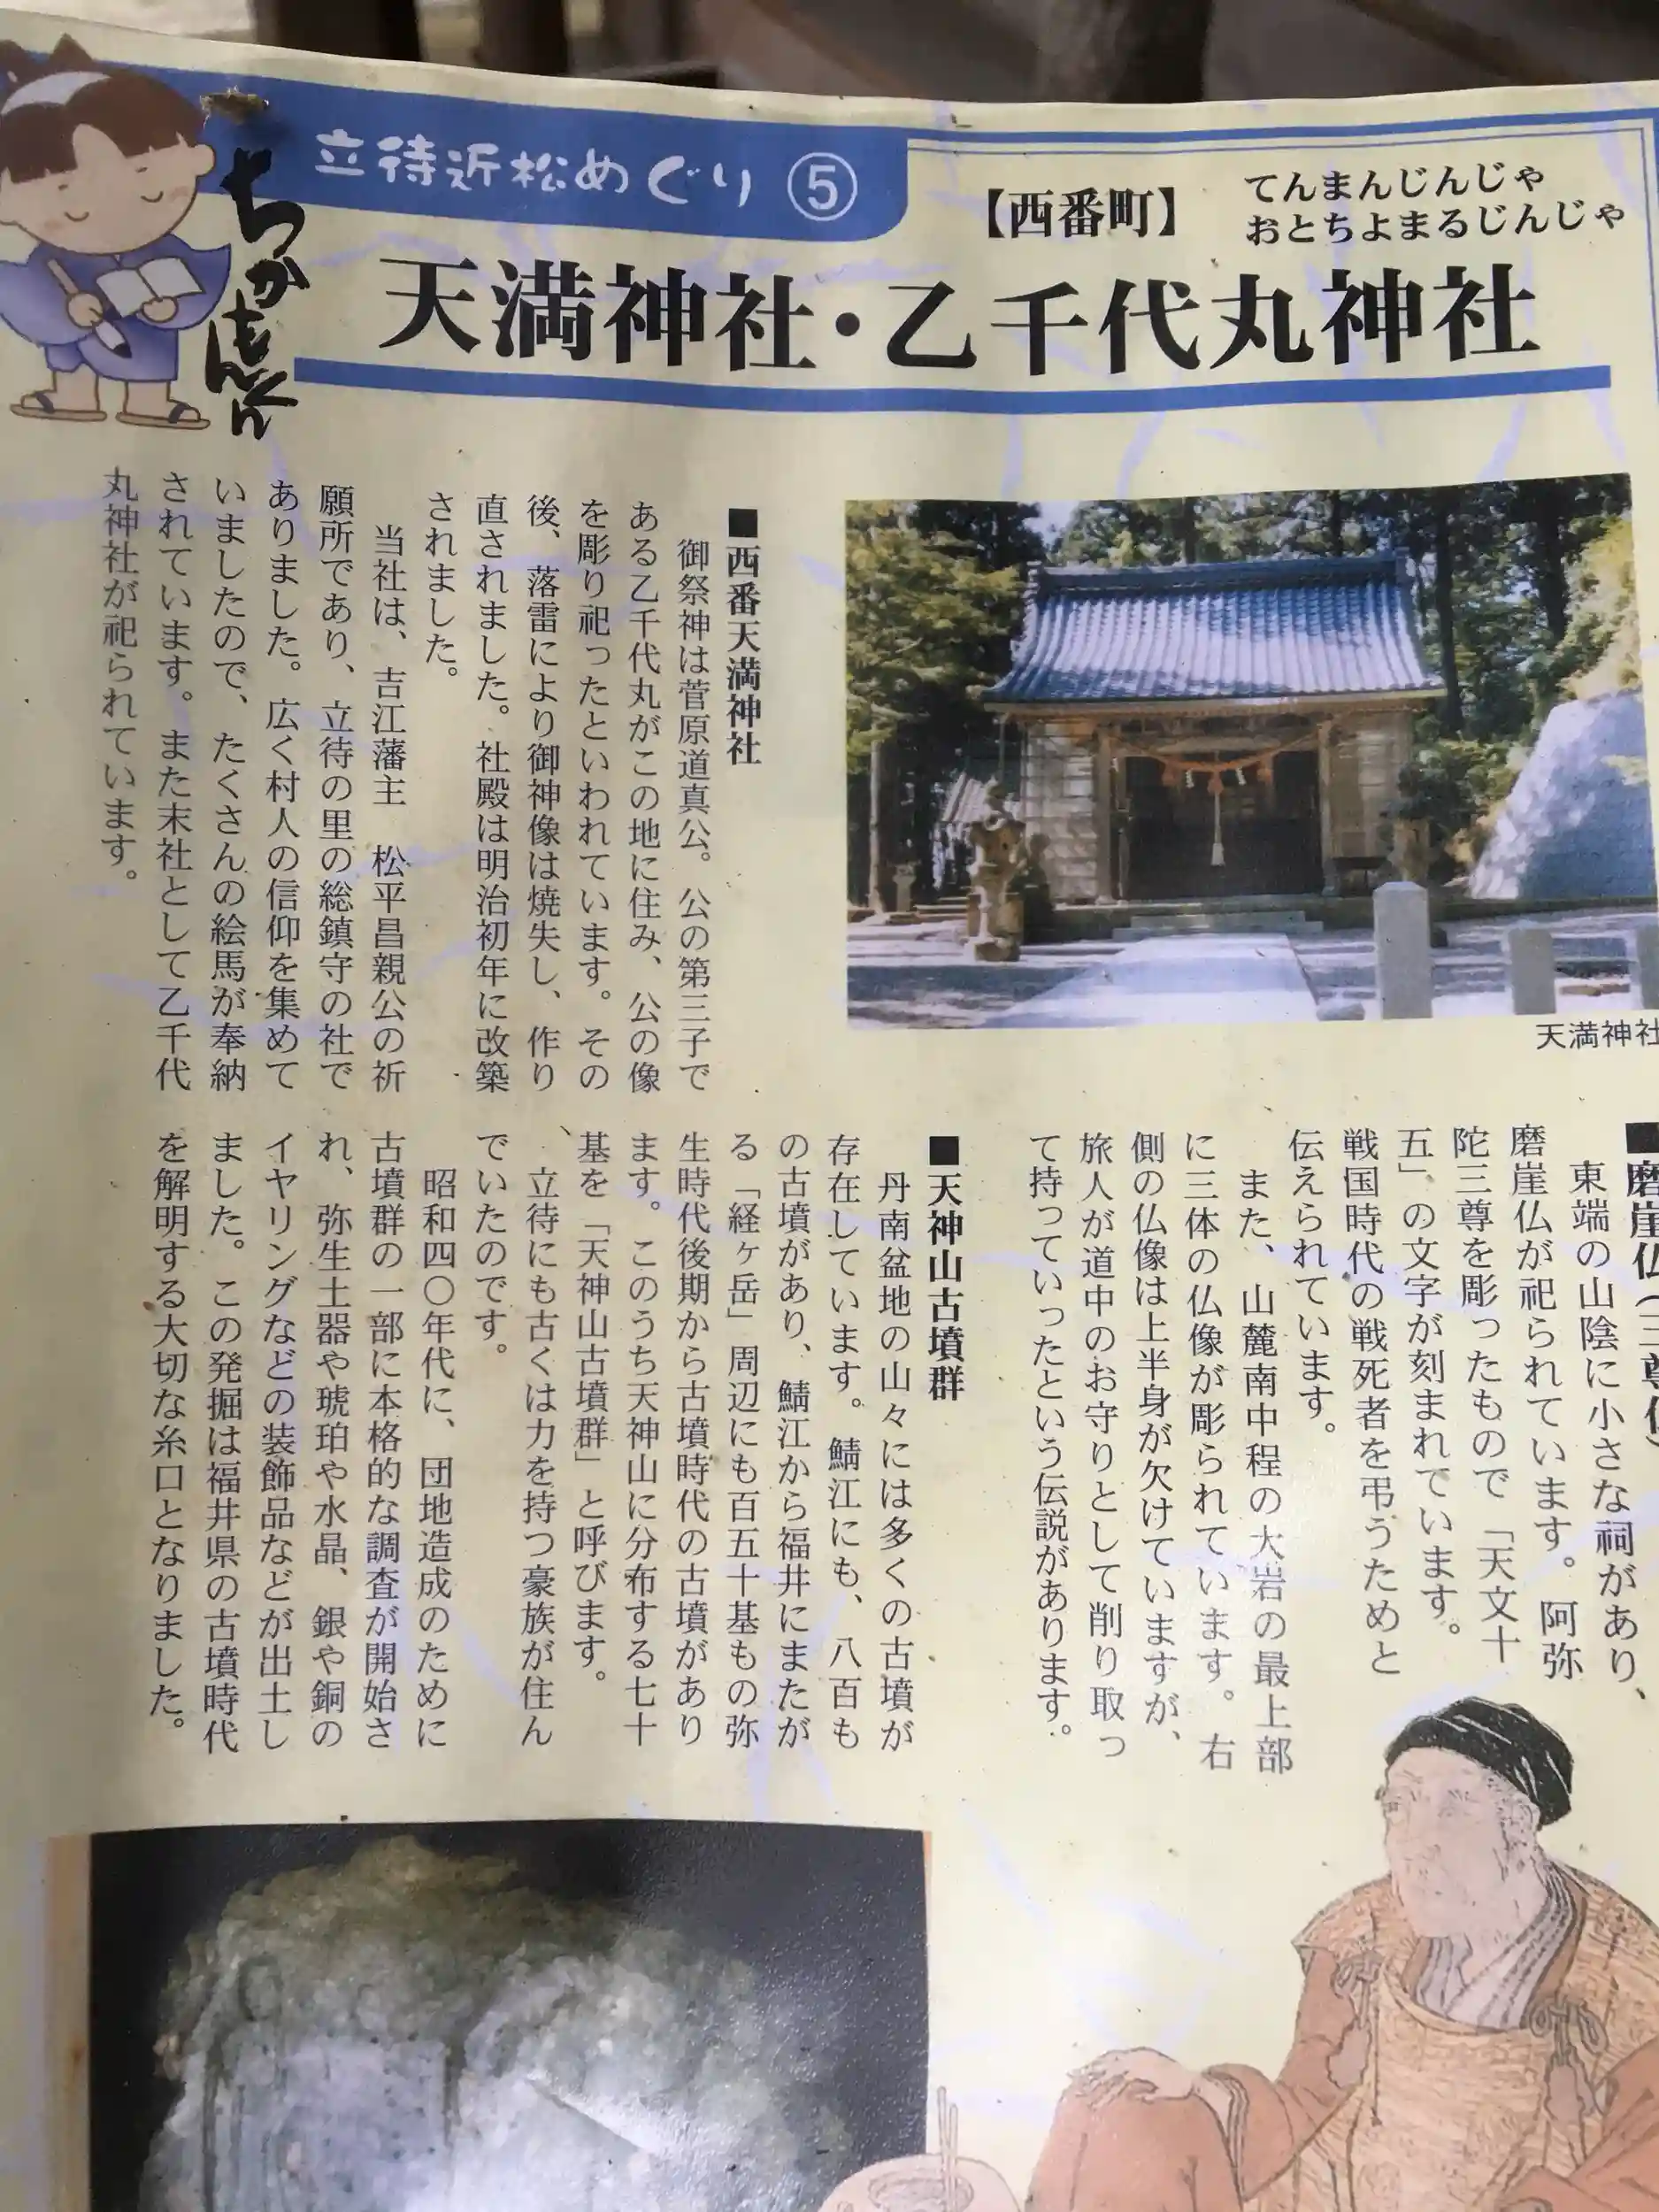 立待近松めぐり ⑤
ちかもんくん
【西番町】
てんまんじんじゃ
おとちよまるじんじゃ
天満神社・乙千代丸神社
天満神社
■西番天満神社
御祭神は菅原道真公。公の第三子で
ある乙千代丸がこの地に住み、公の像
を彫り祀ったといわれています。その
後、落雷により御神像は焼失し、作り
直されました。社殿は明治初年に改築
されました。
当社は、吉江藩主 松平昌親公の祈
願所であり、立待の里の総鎮守の社で
ありました。広く村人の信仰を集めて
いましたので、たくさんの絵馬が奉納
されています。また末社として乙千代
丸神社が祀られています。
■磨崖仏(三尊仏)
東端の山陰に小さな祠があり、
磨崖仏が祀られています。阿弥
陀三尊を彫ったもので「天文十
五」の文字が刻まれています。
戦国時代の戦死者を弔うためと
伝えられています。
また、山麓南中程の大岩の最上部
に三体の仏像が彫られています。右
側の仏像は上半身が欠けていますが、
旅人が道中のお守りとして削り取っ
て持っていったという伝説があります。
■天神山古墳群
丹南盆地の山々には多くの古墳が
存在しています。鯖江にも、八百も
の古墳があり、鯖江から福井にまたが
る「経ヶ岳」周辺にも百五十基もの弥
生時代後期から古墳時代の古墳があり
ます。このうち天神山に分布する七十
基を「天神山古墳群」と呼びます。
立待にも古くは力を持つ豪族が住ん
でいたのです。
昭和四〇年代に、団地造成のために
古墳群の一部に本格的な調査が開始さ
れ、弥生土器や琥珀や水晶、銀や銅の
イヤリングなどの装飾品などが出土し
ました。この発掘は福井県の古墳時代
を解明する大切な糸口となりました。